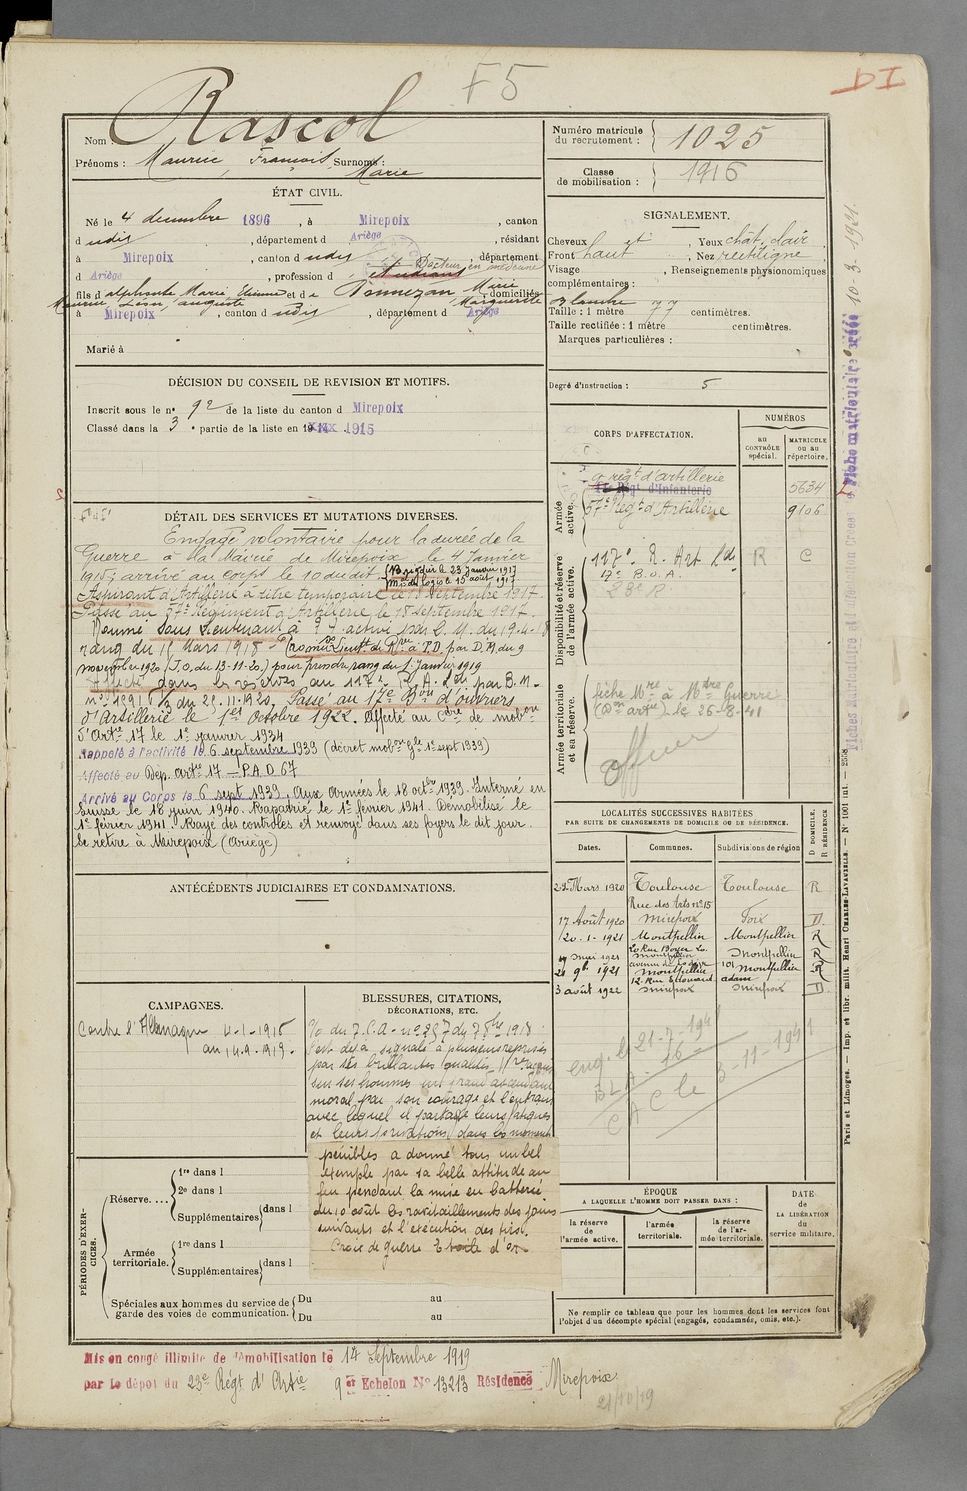 F5
DI
Nom Rascol
Prénoms : Maurice, François, Surnoms : Marie
Numéro matricule du recrutement : 1025
Classe de mobilisation : 1916
ÉTAT CIVIL.
Né le 4 décembre 1896, à Mirepoix, canton
d udis, département d Ariège, résidant
à Mirepoix, canton d udis, département
d Ariège, profession d étudiant Docteur en médecine
fils d alphonse Marie Etienne et d e Bonnezan Marie domiciliés
Maurice Léon, auguste Marguerite
à Mirepoix, canton d udis, département d Ariège
Marié à
SIGNALEMENT.
Cheveux chât, Yeux chât. clair
Front haut, Nez rectiligne
Visage, Renseignements physionomiques
complémentaires :
Taille : 1 mètre 77 centimètres.
Taille rectifiée : 1 mètre centimètres.
Marques particulières :
Degré d'instruction : 5
DÉCISION DU CONSEIL DE REVISION ET MOTIFS.
Inscrit sous le n° 92 de la liste du canton d Mirepoix
Classé dans la 3e partie de la liste en 1915
CORPS D'AFFECTATION.
NUMÉROS
AU CONTRÔLE spécial.
MATRICULE OU AU répertoire.
Armée active.
9e régt d'artillerie 5634
Régt d'Infanterie
57e Régt d'Artillerie 9106
Disponibilité et réserve de l'armée active.
117e R. Art Lde R C
17e B.O.A.
23e R
Armée territoriale et sa réserve.
fiche Mre à Mdre Guerre
(Don artie) le 26-8-41
offier
DÉTAIL DES SERVICES ET MUTATIONS DIVERSES.
Engagé volontaire pour la durée de la
Guerre à la Mairie de Mirepoix le 4 Janvier
1915; arrivé au corps le 10 du dit (Brigadier le 23 Janvier 1917
Mis des logis le 15 août 1917
Aspirant d'Artillerie à titre temporaire le 15 Septembre 1917.
Passé au 57e Régiment d'Artillerie le 18 septembre 1917.
Nommé Sous Lieutenant à T.T. active par D. M. du 19.4.18
rang du 15 Mars 1918 - (Promu s. Lieutt de Rve à T.D. par D. M. du 9
novembre 1920 (J.O. du 13-11-20) pour prendre rang du 1. Janvier 1919
Affecté dans les réserves au 117e R. A. Lde par B.M.
n° 1991 1/3 du 21.11.1920. Passé au 17e Bon d'ouvriers
d'Artillerie le 1er Octobre 1922. Affecté au Ctre de mobon
d'Artie 17 le 1er janvier 1934
Rappelé à l'activité le 6 septembre 1939 (décret mobon gle 1er sept 1939)
Affecté au Dép. artie 17 — P.A.D 67
Arrivé au Corps le 6 sept 1939. Aux armées le 18 octbre 1939. Interné en
Suisse le 18 juin 1940. Rapatrié le 1er février 1941. Démobilisé le
1er février 1941. Rayé des contrôles et renvoyé dans ses foyers le dit jour.
Se retire à Mirepoix (Ariège)
ANTÉCÉDENTS JUDICIAIRES ET CONDAMNATIONS.
LOCALITÉS SUCCESSIVES HABITÉES
PAR SUITE DE CHANGEMENTS DE DOMICILE OU DE RÉSIDENCE.
Dates. Communes. Subdivisions de région D DOMICILE. R RÉSIDENCE
25 Mars 1920 Toulouse Toulouse R
Rue des Arts n° 15
17 Août 1920 Mirepoix Foix D
20.1-1921 Montpellier Montpellier R
20 Rue Boyer 20.
19 mai 1921 Montpellier Montpellier R
avenue de 101
21 9b. 1921 Montpellier Montpellier R
12. Rue Edouard adam
3 août 1922 Mirepoix Mirepoix D
eng. le 21-7-1941
BLA - 16
CAC le 3-11-1941
CAMPAGNES.
Contre l'Allemagne 4-1-1915
au 14-9-1919.
BLESSURES, CITATIONS, DÉCORATIONS, ETC.
O. du 7. C.A. n° 257 du 7 8bre 1918
S'est déjà signalé à plusieurs reprises
par ses brillantes qualités
sur ses hommes un grand ascendant
moral par son courage et l'entrain
avec lequel il partage leurs fatigues
et leurs privations dans les moments
pénibles a donné tous un bel
exemple par sa belle attitude au
feu pendant la mise en batterie
du 10 août les ravitaillements des jours
suivants et l'exécution des tirs.
Croix de guerre Etoile d'or
PÉRIODES D'EXERCICES.
Réserve....
1re dans l
2e dans l
Supplémentaires dans l
Armée territoriale.
1re dans l
Supplémentaires dans l
Spéciales aux hommes du service de garde des voies de communication.
Du au
Du au
ÉPOQUE
A LAQUELLE L'HOMME DOIT PASSER DANS :
la réserve de l'armée active.
l'armée territoriale.
la réserve de l'armée territoriale.
DATE de LA LIBÉRATION du service militaire.
Ne remplir ce tableau que pour les hommes dont les services font
l'objet d'un décompte spécial (engagés, condamnés, omis, etc.).
Mis en congé illimité de démobilisation le 14 Septembre 1919
par le dépôt du 23e Régt d'Artie 9e Echelon N° 13213 Résidence Mirepoix
21/10/19
Fiche matriculaire créée 10-3-1921.
Paris et Limoges. — Imp. et libr. milit. Henri CHARLES-LAVAUZELLE. — N° 1001 int. — 2558